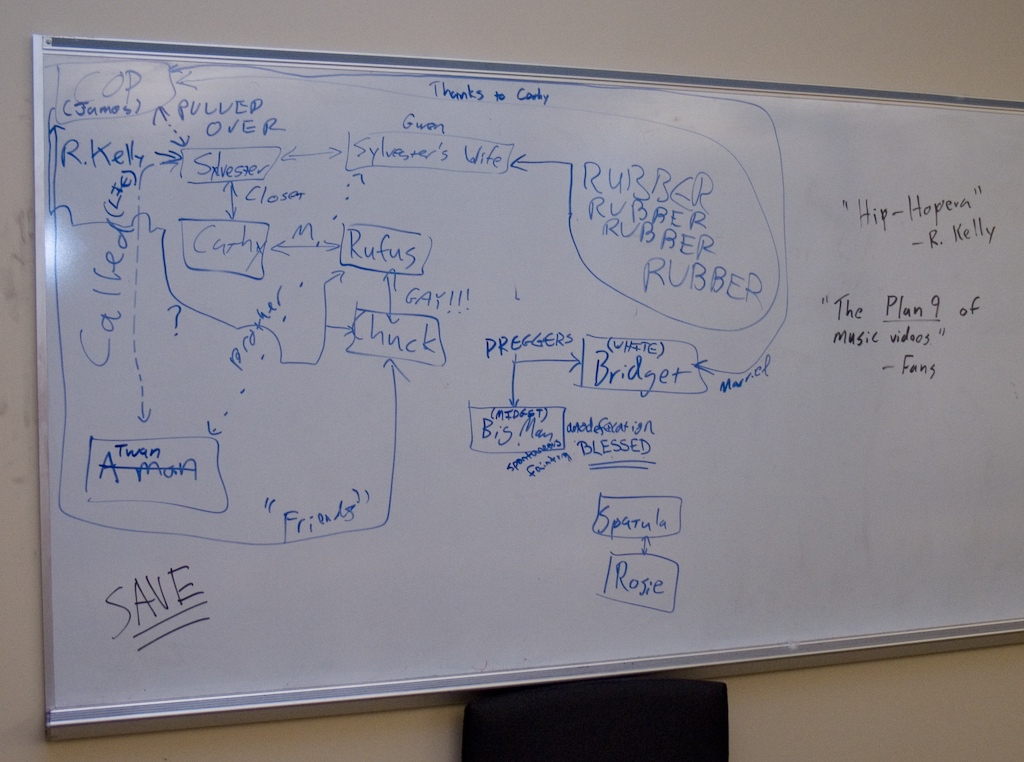 COP
(James)
Thanks to Cathy
PULLED
OVER
R. Kelly
Sylvester
Gwen
Sylvester's Wife
Closet
Called (LIE)
Cathy
M.
Rufus
RUBBER
RUBBER
RUBBER
RUBBER
"Hip-Hopera"
- R. Kelly
?
brother
GAY!!!
Chuck
"The Plan 9 of
music videos"
- Fang
PREGGERS
(WHITE)
Bridget
Married
(MIDGET)
Big Man
BLESSED
spontaneous
fainting
Twan
A man
"Friends"
Spatula
Rosie
SAVE